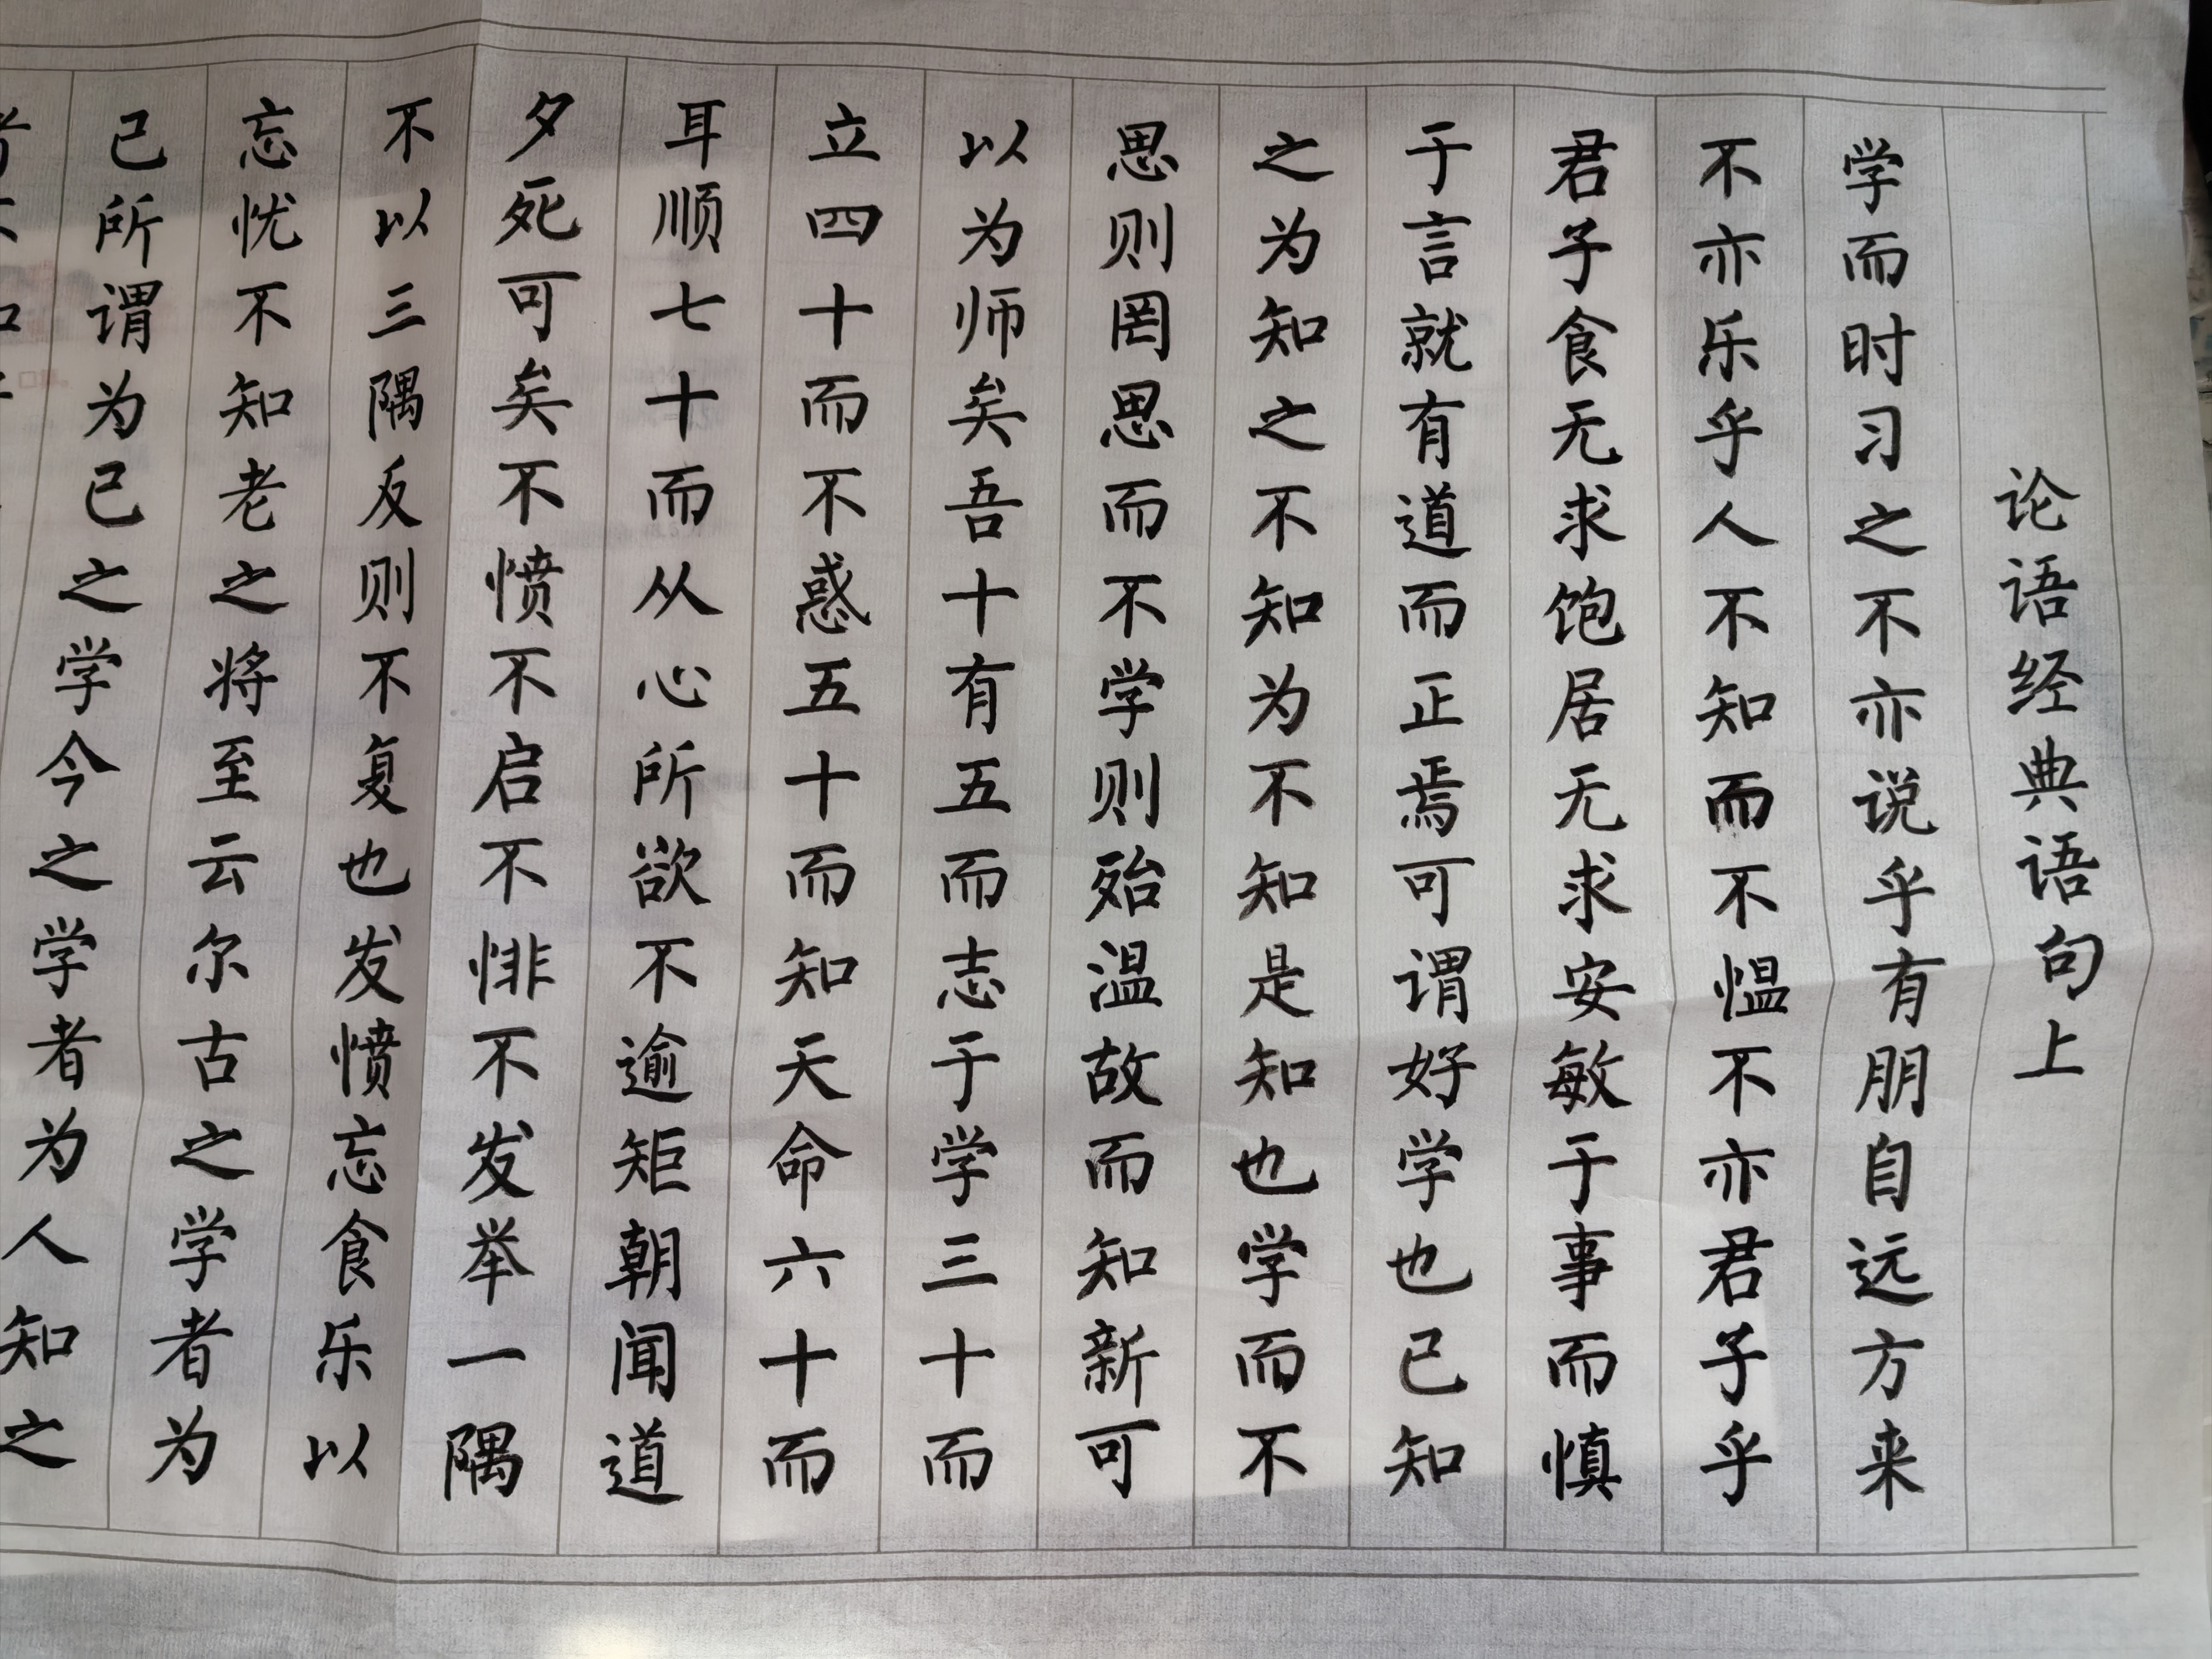 论语经典语句上
学而时习之不亦说乎有朋自远方来
不亦乐乎人不知而不愠不亦君子乎
君子食无求饱居无求安敏于事而慎
于言就有道而正焉可谓好学也已知
之为知之不知为不知是知也学而不
思则罔思而不学则殆温故而知新可
以为师矣吾十有五而志于学三十而
立四十而不惑五十而知天命六十而
耳顺七十而从心所欲不逾矩朝闻道
夕死可矣不愤不启不悱不发举一隅
不以三隅反则不复也发愤忘食乐以
忘忧不知老之将至云尔古之学者为
己所谓为己之学今之学者为人知之